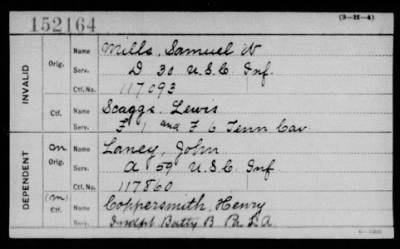 152164
(3-H-4)
INVALID
Orig.
Name Mills, Samuel W
Serv. D 30 U.S.C. Inf.
Ctf. No. 117093
Ctf.
Name Scaggs, Lewis
Serv. F 1 and F 6 Tenn Cav
DEPENDENT
on Orig.
Name Laney, John
Serv. A 59 U.S.C Inf
Ctf. No. 117860
(m) Ctf.
Name Coppersmith, Henry
Serv. Indpt Batty B Pa L.A.